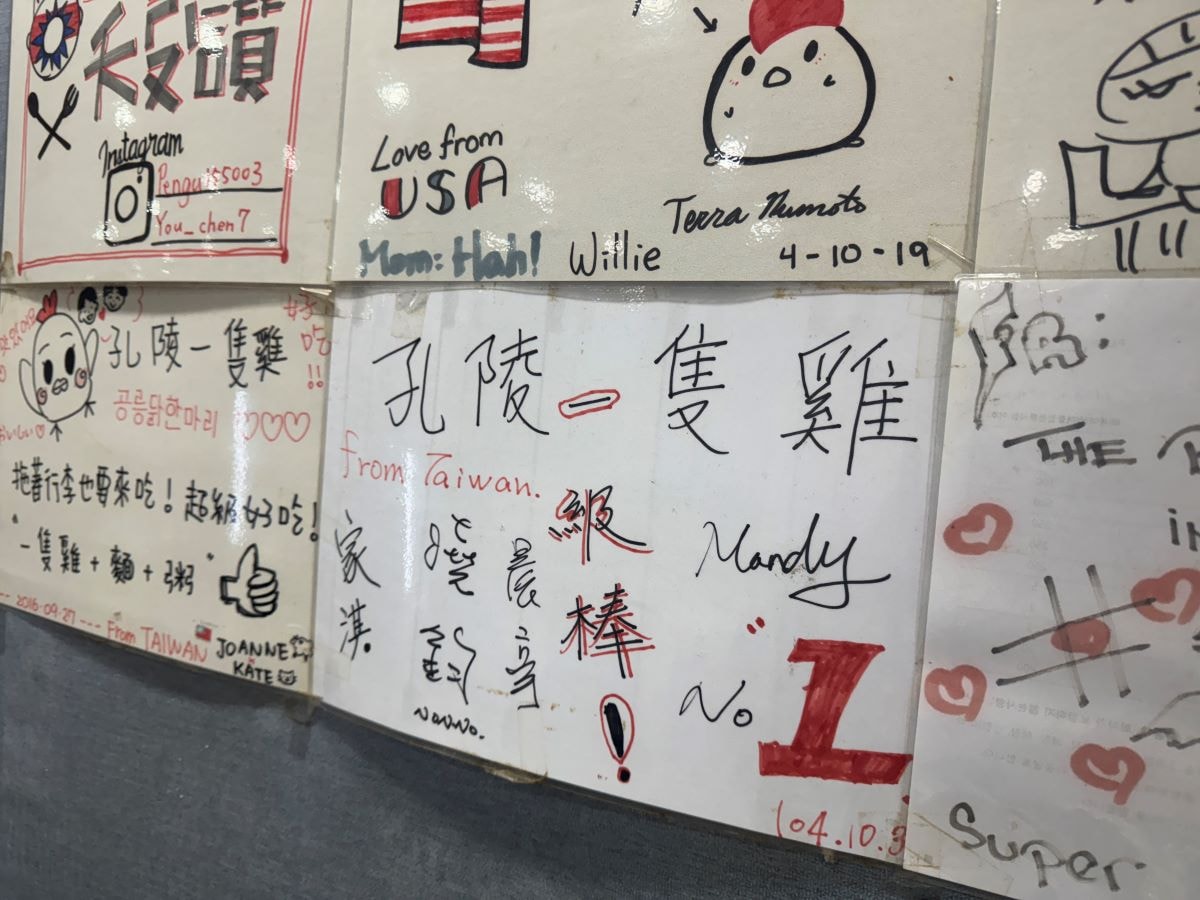 Instagram
Pengu155003
You_chen7
Love from
USA
Terra Numoto
Mom: Hah!
Willie
4-10-19
好吃!!
孔陵一隻雞
공릉닭한마리
おいしい
拖著行李也要來吃!超級好吃!
"一隻雞+麵+粥"
2016-09-27 --- From TAIWAN
JOANNE
KATE
孔陵一隻雞
from Taiwan.
級棒!
家淇.
Mandy
"No 1
104.10.3
THE
in
Super